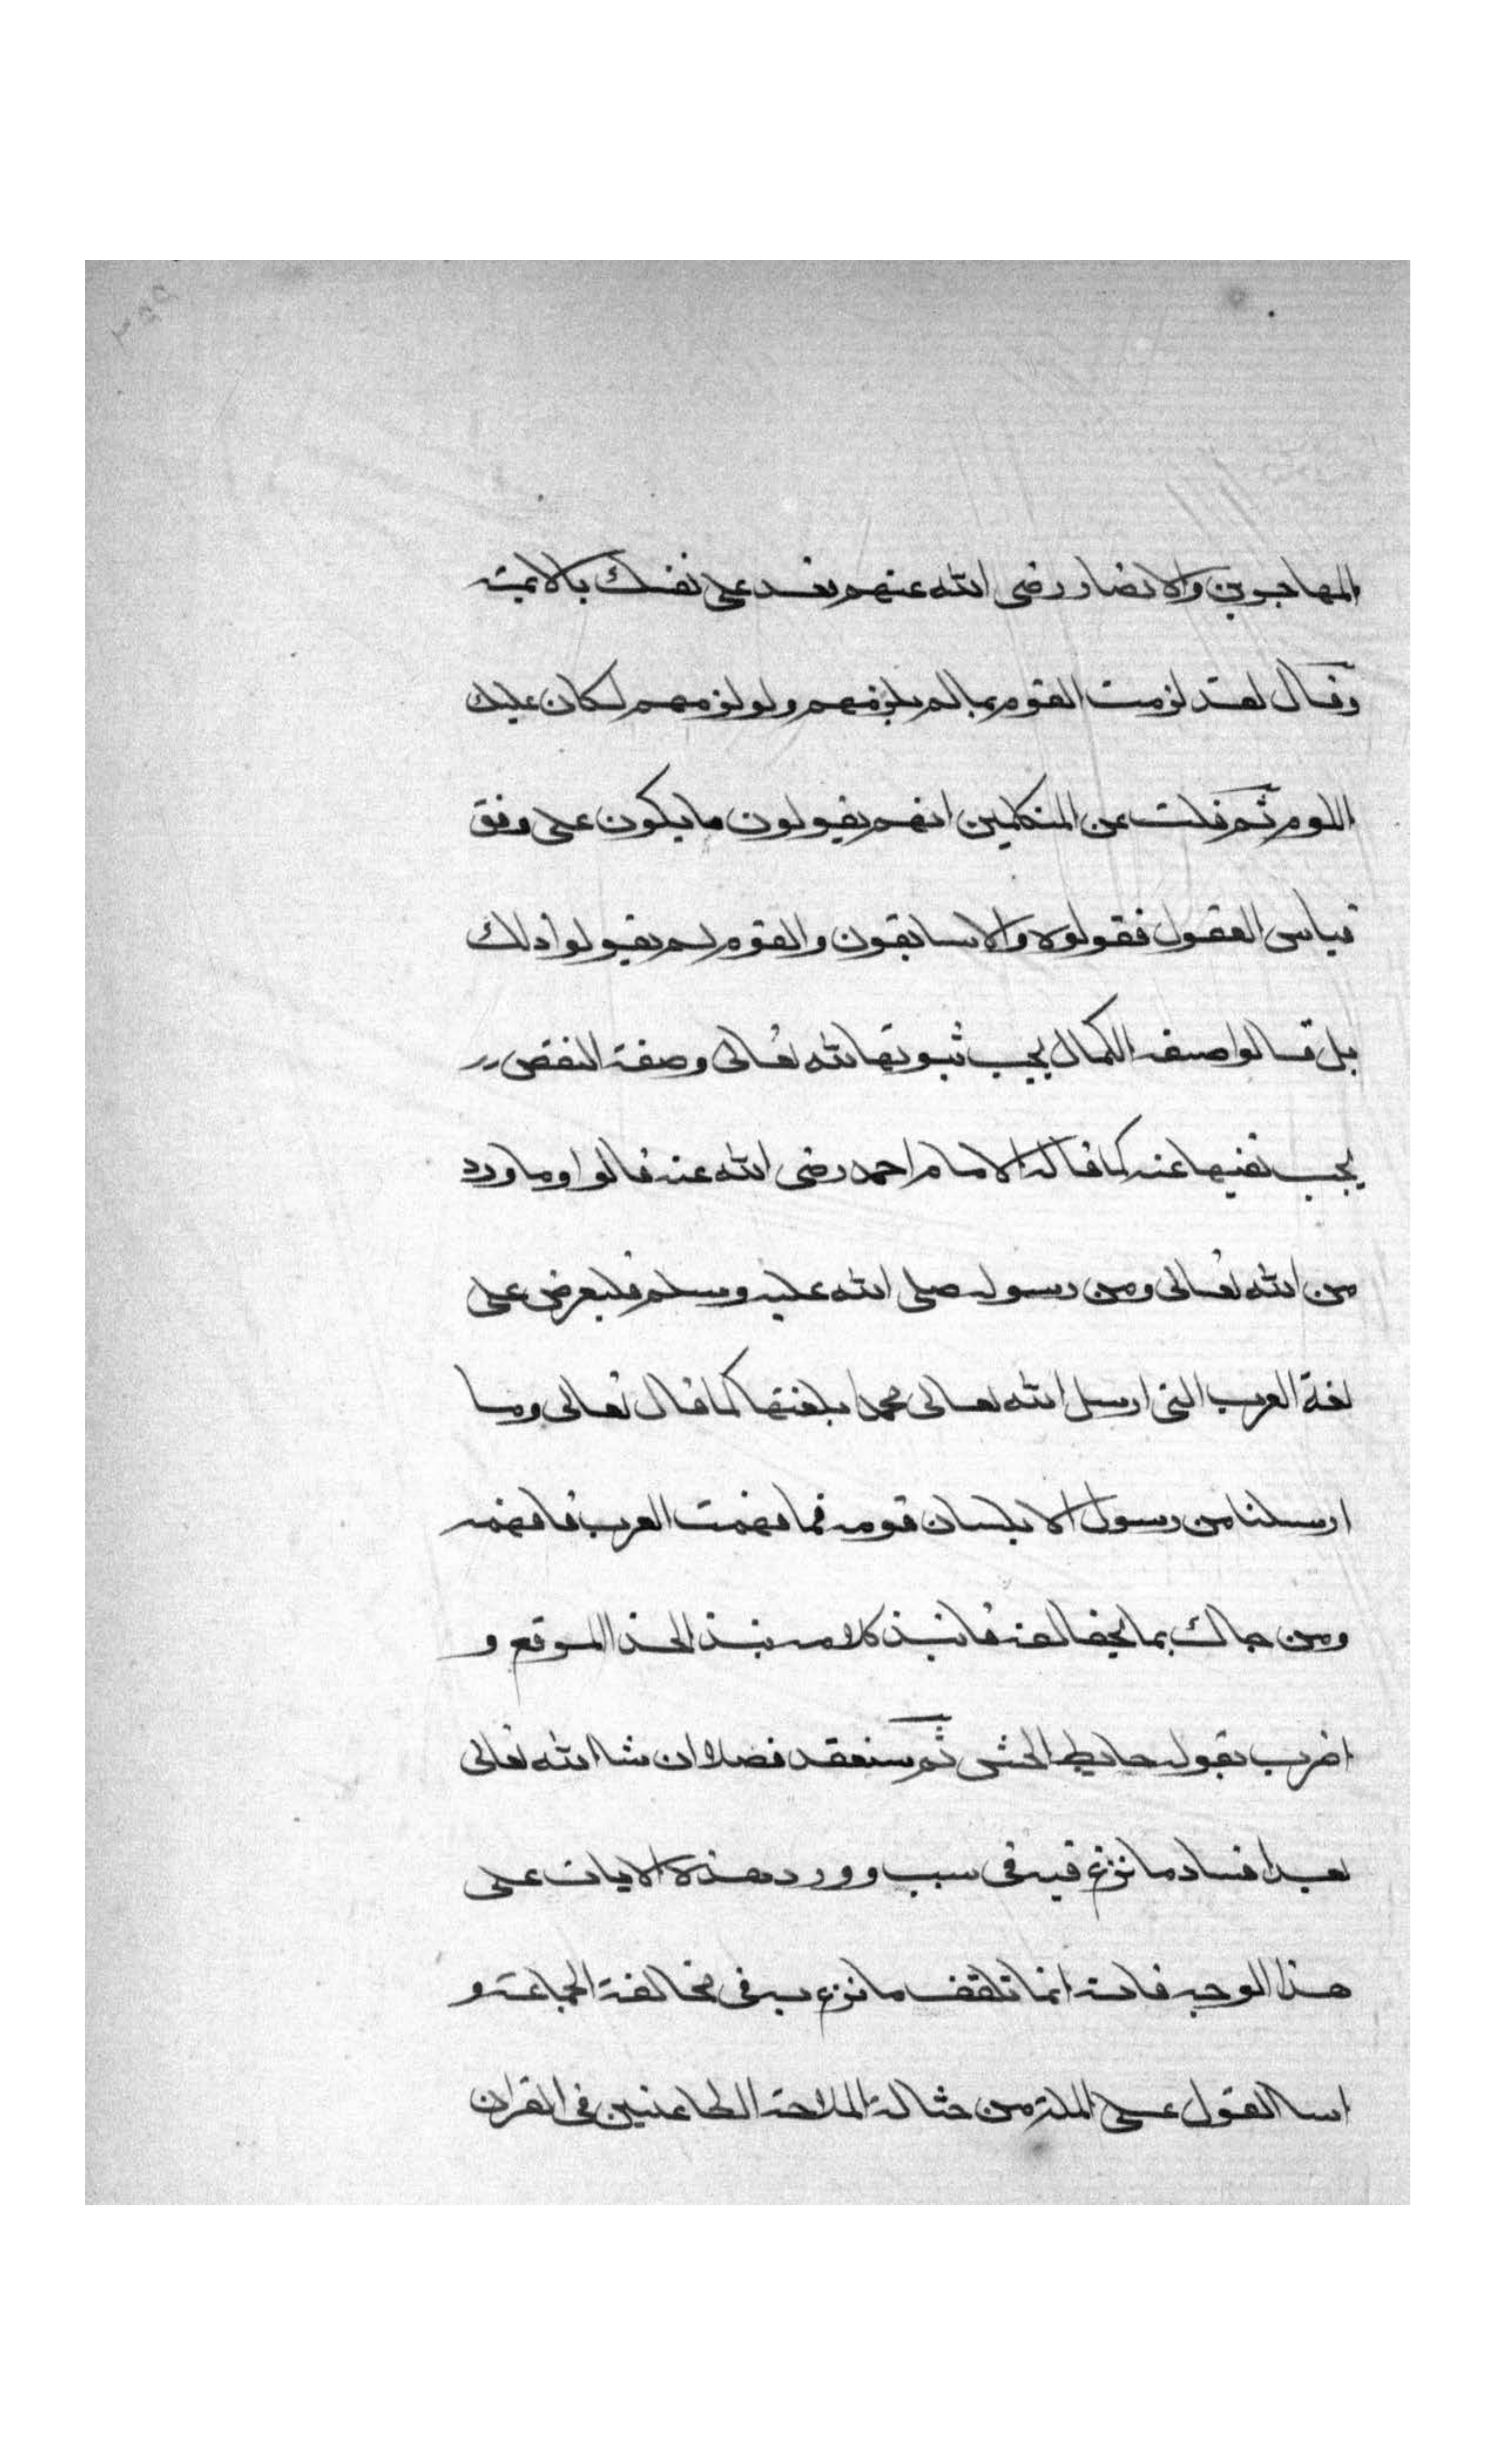 المهاجرين والانصار رضى الله عنهم فعد على نفسك بالايمة
وقال لقد لزمت القوم بما لم يلزمهم ولو لزمهم لكان عليك
اللوم ثم قلت عن المتكلمين انهم يقولون ما يكون على وفق
قياس العقول فقولوه والا سابقون والقوم لم يقولوا ذلك
بل قالوا صفة الكمال يجب ثبوتها لله تعالى وصفة النقص
يجب نفيها عنه كما قاله الامام احمد رضى الله عنه قالوا وما ورد
من الله تعالى ومن رسوله صلى الله عليه وسلم فليعرض على
لغة العرب التى ارسل الله تعالى محمدا بلغتها كما قال تعالى وما
ارسلنا من رسول الا بلسان قومه فما فهمت العرب فافهمه
ومن جاك بما يخالفه فانبذ كلامه نبذ الحذا المرقع و
اضرب بقوله حايط الحش ثم سنعقد فصلا ان شا الله تعالى
بعد افساد ما نزع فيه فى سبب وورد هذه الايات على
هذا الوجه فانه انما تلقف ما نزع به فى مخالفة الجماعة و
اسا القول على الملة من حثالة الملاحدة الطاعنين فى القران